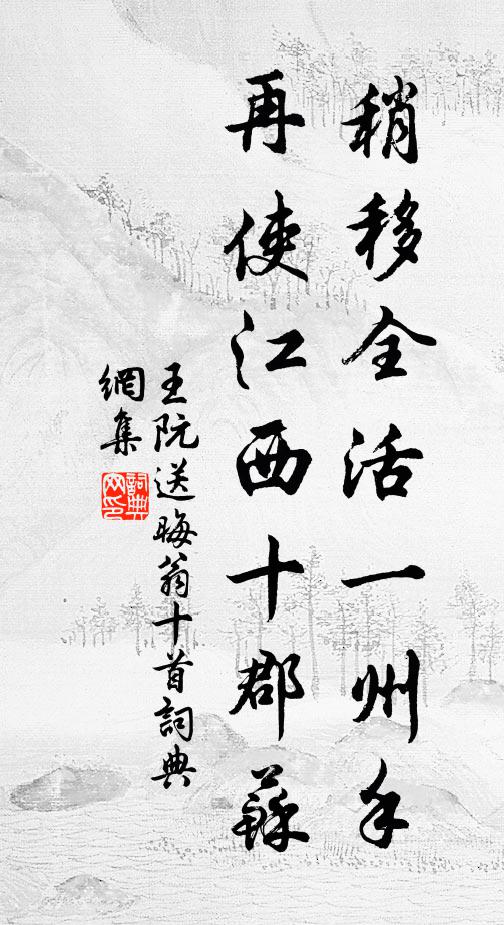 稍移全活一州手
再使江西十郡蘇
王阮送晦翁十首詞典
網集
詞典網印